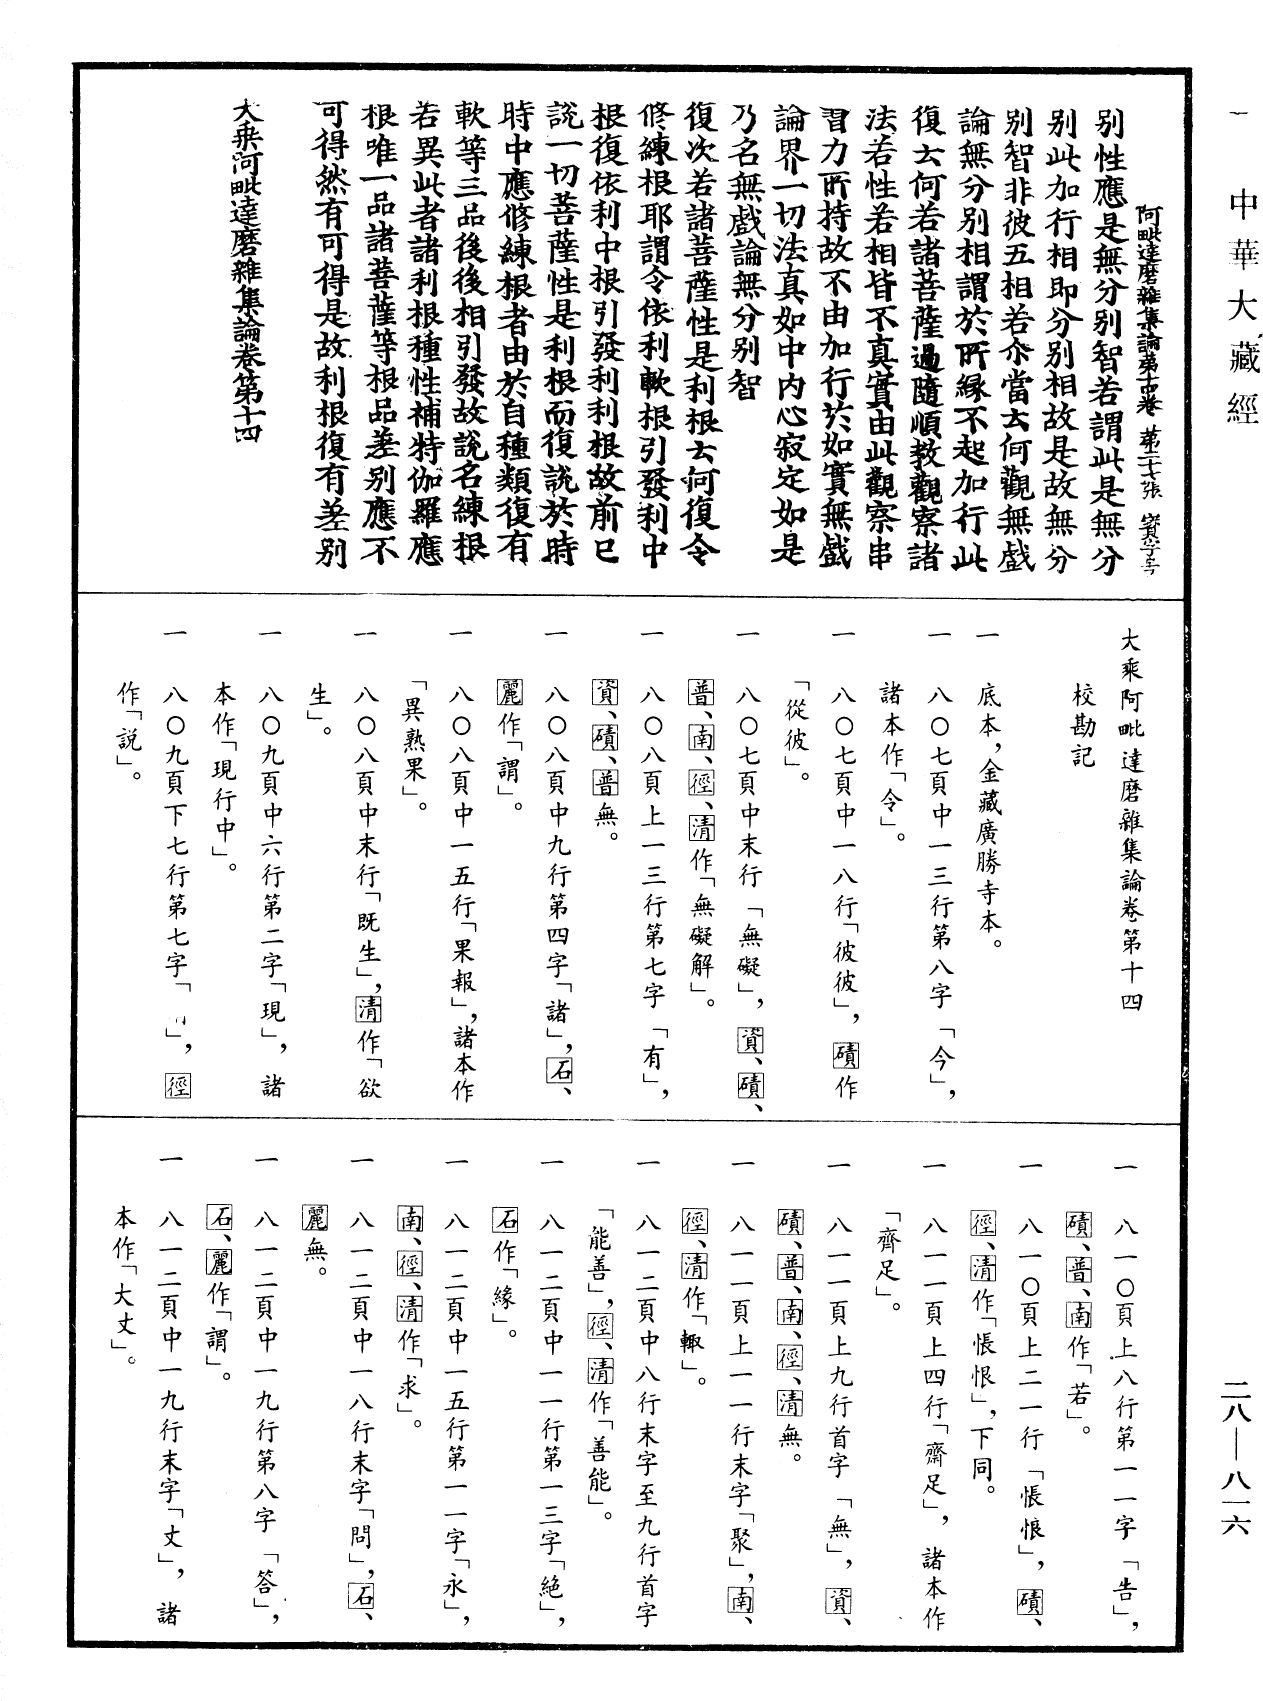 中華大藏經
阿毗達磨雜集論第十四卷 第二十七張 賓字号
別性應是無分別智若謂此是無分
別此加行相即分別相故是故無分
別智非彼五相若尒當云何觀無戲
論無分別相謂於所緣不起加行此
復云何若諸菩薩過隨順教觀察諸
法若性若相皆不真實由此觀察串
習力所持故不由加行於如實無戲
論界一切法真如中內心寂定如是
乃名無戲論無分別智
復次若諸菩薩性是利根云何復令
修練根耶謂令依利軟根引發利中
根復依利中根引發利利根故前已
說一切菩薩性是利根而復說於時
時中應修練根者由於自種類復有
軟等三品後後相引發故說名練根
若異此者諸利根種性補特伽羅應
根唯一品諸菩薩等根品差別應不
可得然有可得是故利根復有差別
大乘阿毗達磨雜集論卷第十四
大乘阿毗達磨雜集論卷第十四
校勘記
一 底本,金藏廣勝寺本。
一 八〇七頁中一三行第八字「今」,
諸本作「令」。
一 八〇七頁中一八行「彼彼」,磧作
「從彼」。
一 八〇七頁中末行「無礙」,資、磧、
普、南、徑、清作「無礙解」。
一 八〇八頁上一三行第七字「有」,
資、磧、普無。
一 八〇八頁中九行第四字「諸」,石、
麗作「謂」。
一 八〇八頁中一五行「果報」,諸本作
「異熟果」。
一 八〇八頁中末行「既生」,清作「欲
生」。
一 八〇九頁中六行第二字「現」,諸
本作「現行中」。
一 八〇九頁下七行第七字「 」,徑
作「說」。
一 八一〇頁上八行第一一字「告」,
磧、普、南作「若」。
一 八一〇頁上二一行「悵悢」,磧、
徑、清作「悵恨」,下同。
一 八一一頁上四行「齋足」,諸本作
「齊足」。
一 八一一頁上九行首字「無」,資、
磧、普、南、徑、清無。
一 八一一頁上一一行末字「聚」,南、
徑、清作「輙」。
一 八一二頁中八行末字至九行首字
「能善」,徑、清作「善能」。
一 八一二頁中一一行第一三字「絶」,
石作「緣」。
一 八一二頁中一五行第一一字「永」,
南、徑、清作「求」。
一 八一二頁中一八行末字「問」,石、
麗無。
一 八一二頁中一九行第八字「答」,
石、麗作「謂」。
一 八一二頁中一九行末字「丈」,諸
本作「大丈」。
二八—八一六